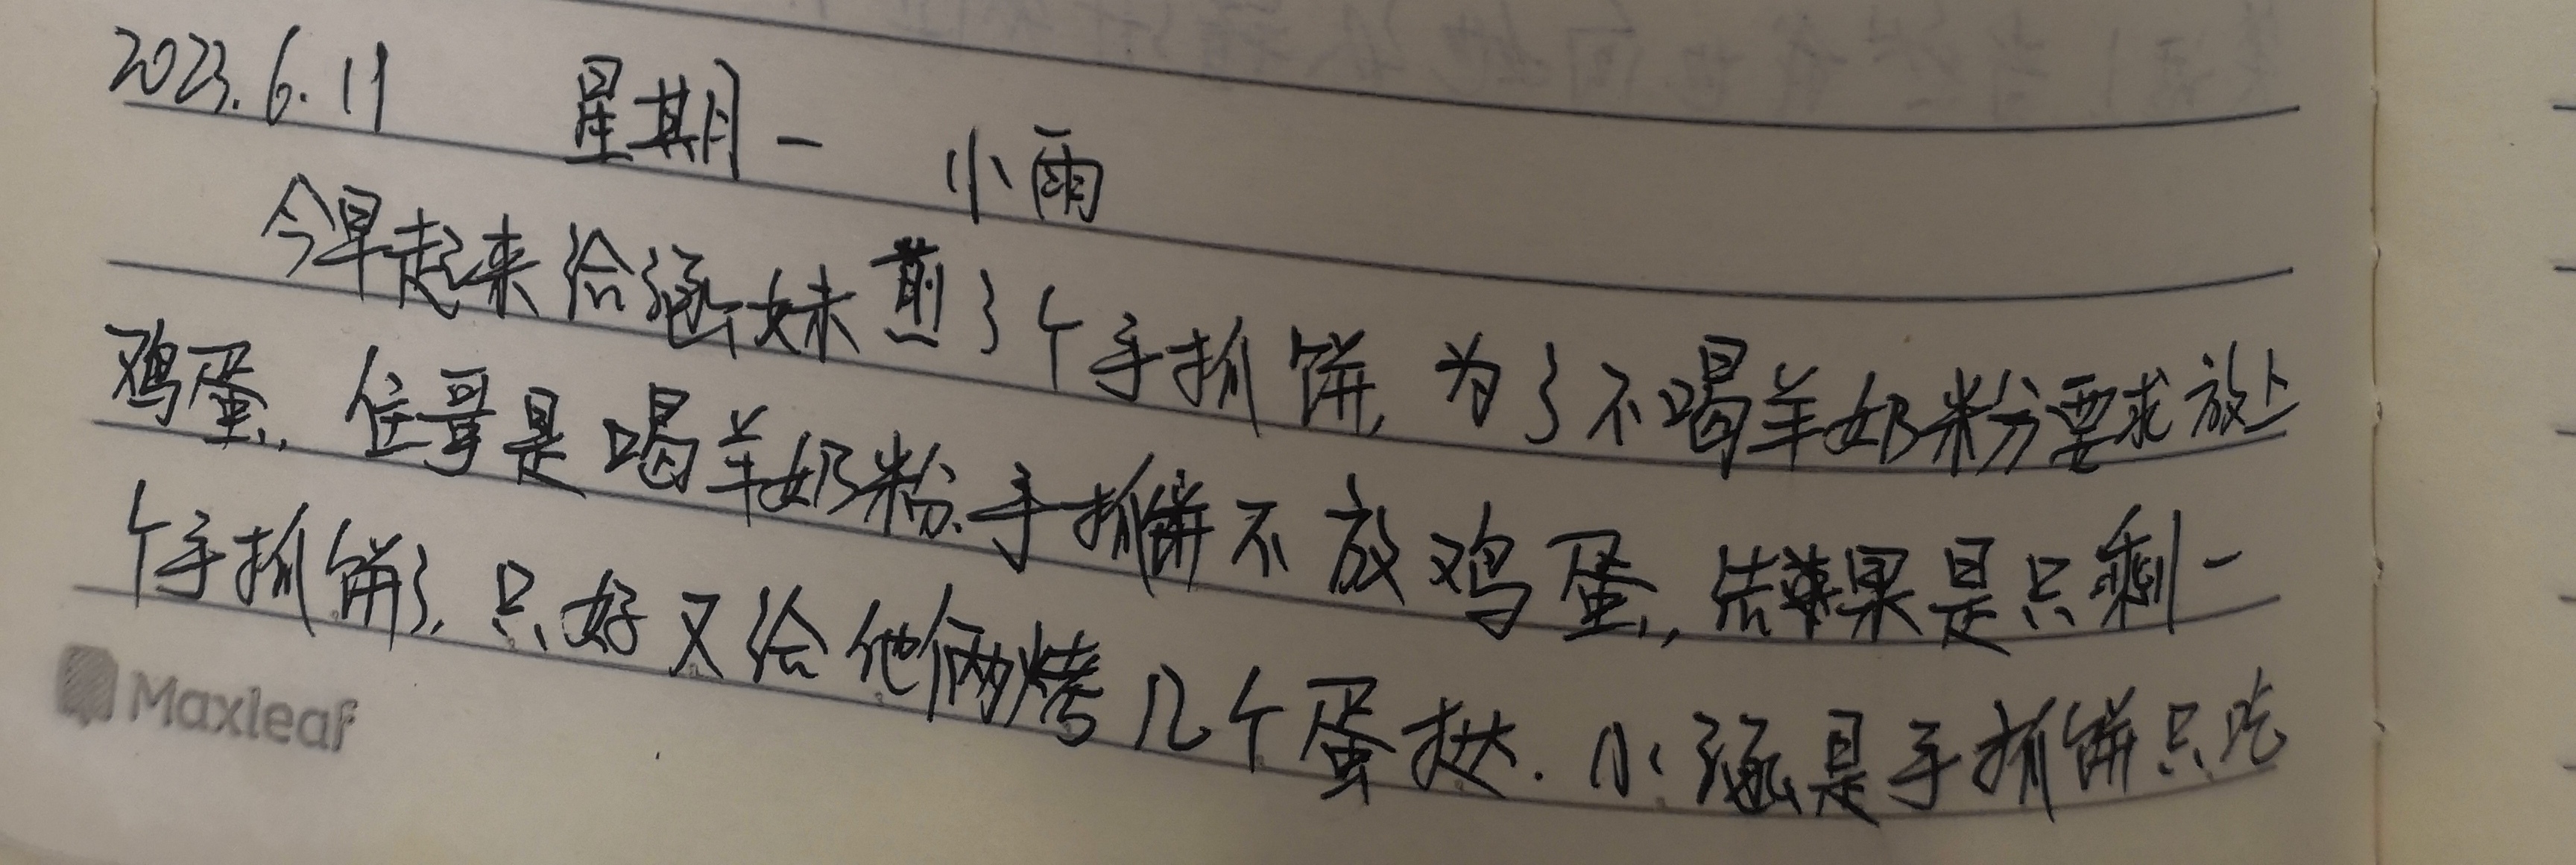 2023.6.11 星期一 小雨
今早起来给涵妹煎了个手抓饼,为了不喝羊奶粉要求放上
鸡蛋,,佳哥是喝羊奶粉.手抓饼不放鸡蛋,,结果是只剩一
个手抓饼了,只好又给他俩烤几个蛋挞.小涵是手抓饼只吃
Maxleaf